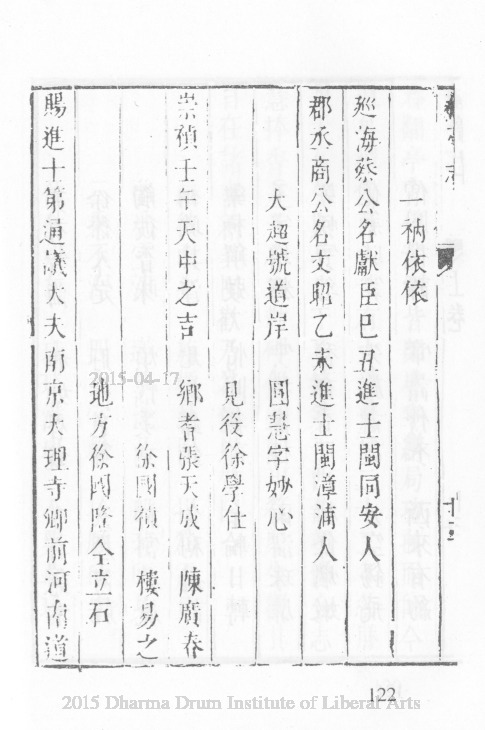 一衲依依
廵海蔡公名獻臣巳丑進士閩同安人
郡丞商公名文昭乙未進士閩漳浦人
大超號道岸 圓慧字妙心
見役徐學仕
崇禎壬午天中之吉 鄉耆張天成 陳廣春
徐國禎 樓易之
地方徐國隆仝立石
賜進士第通議大夫南京大理寺卿前河南道
122
2015-04-17
2015 Dharma Drum Institute of Liberal Arts